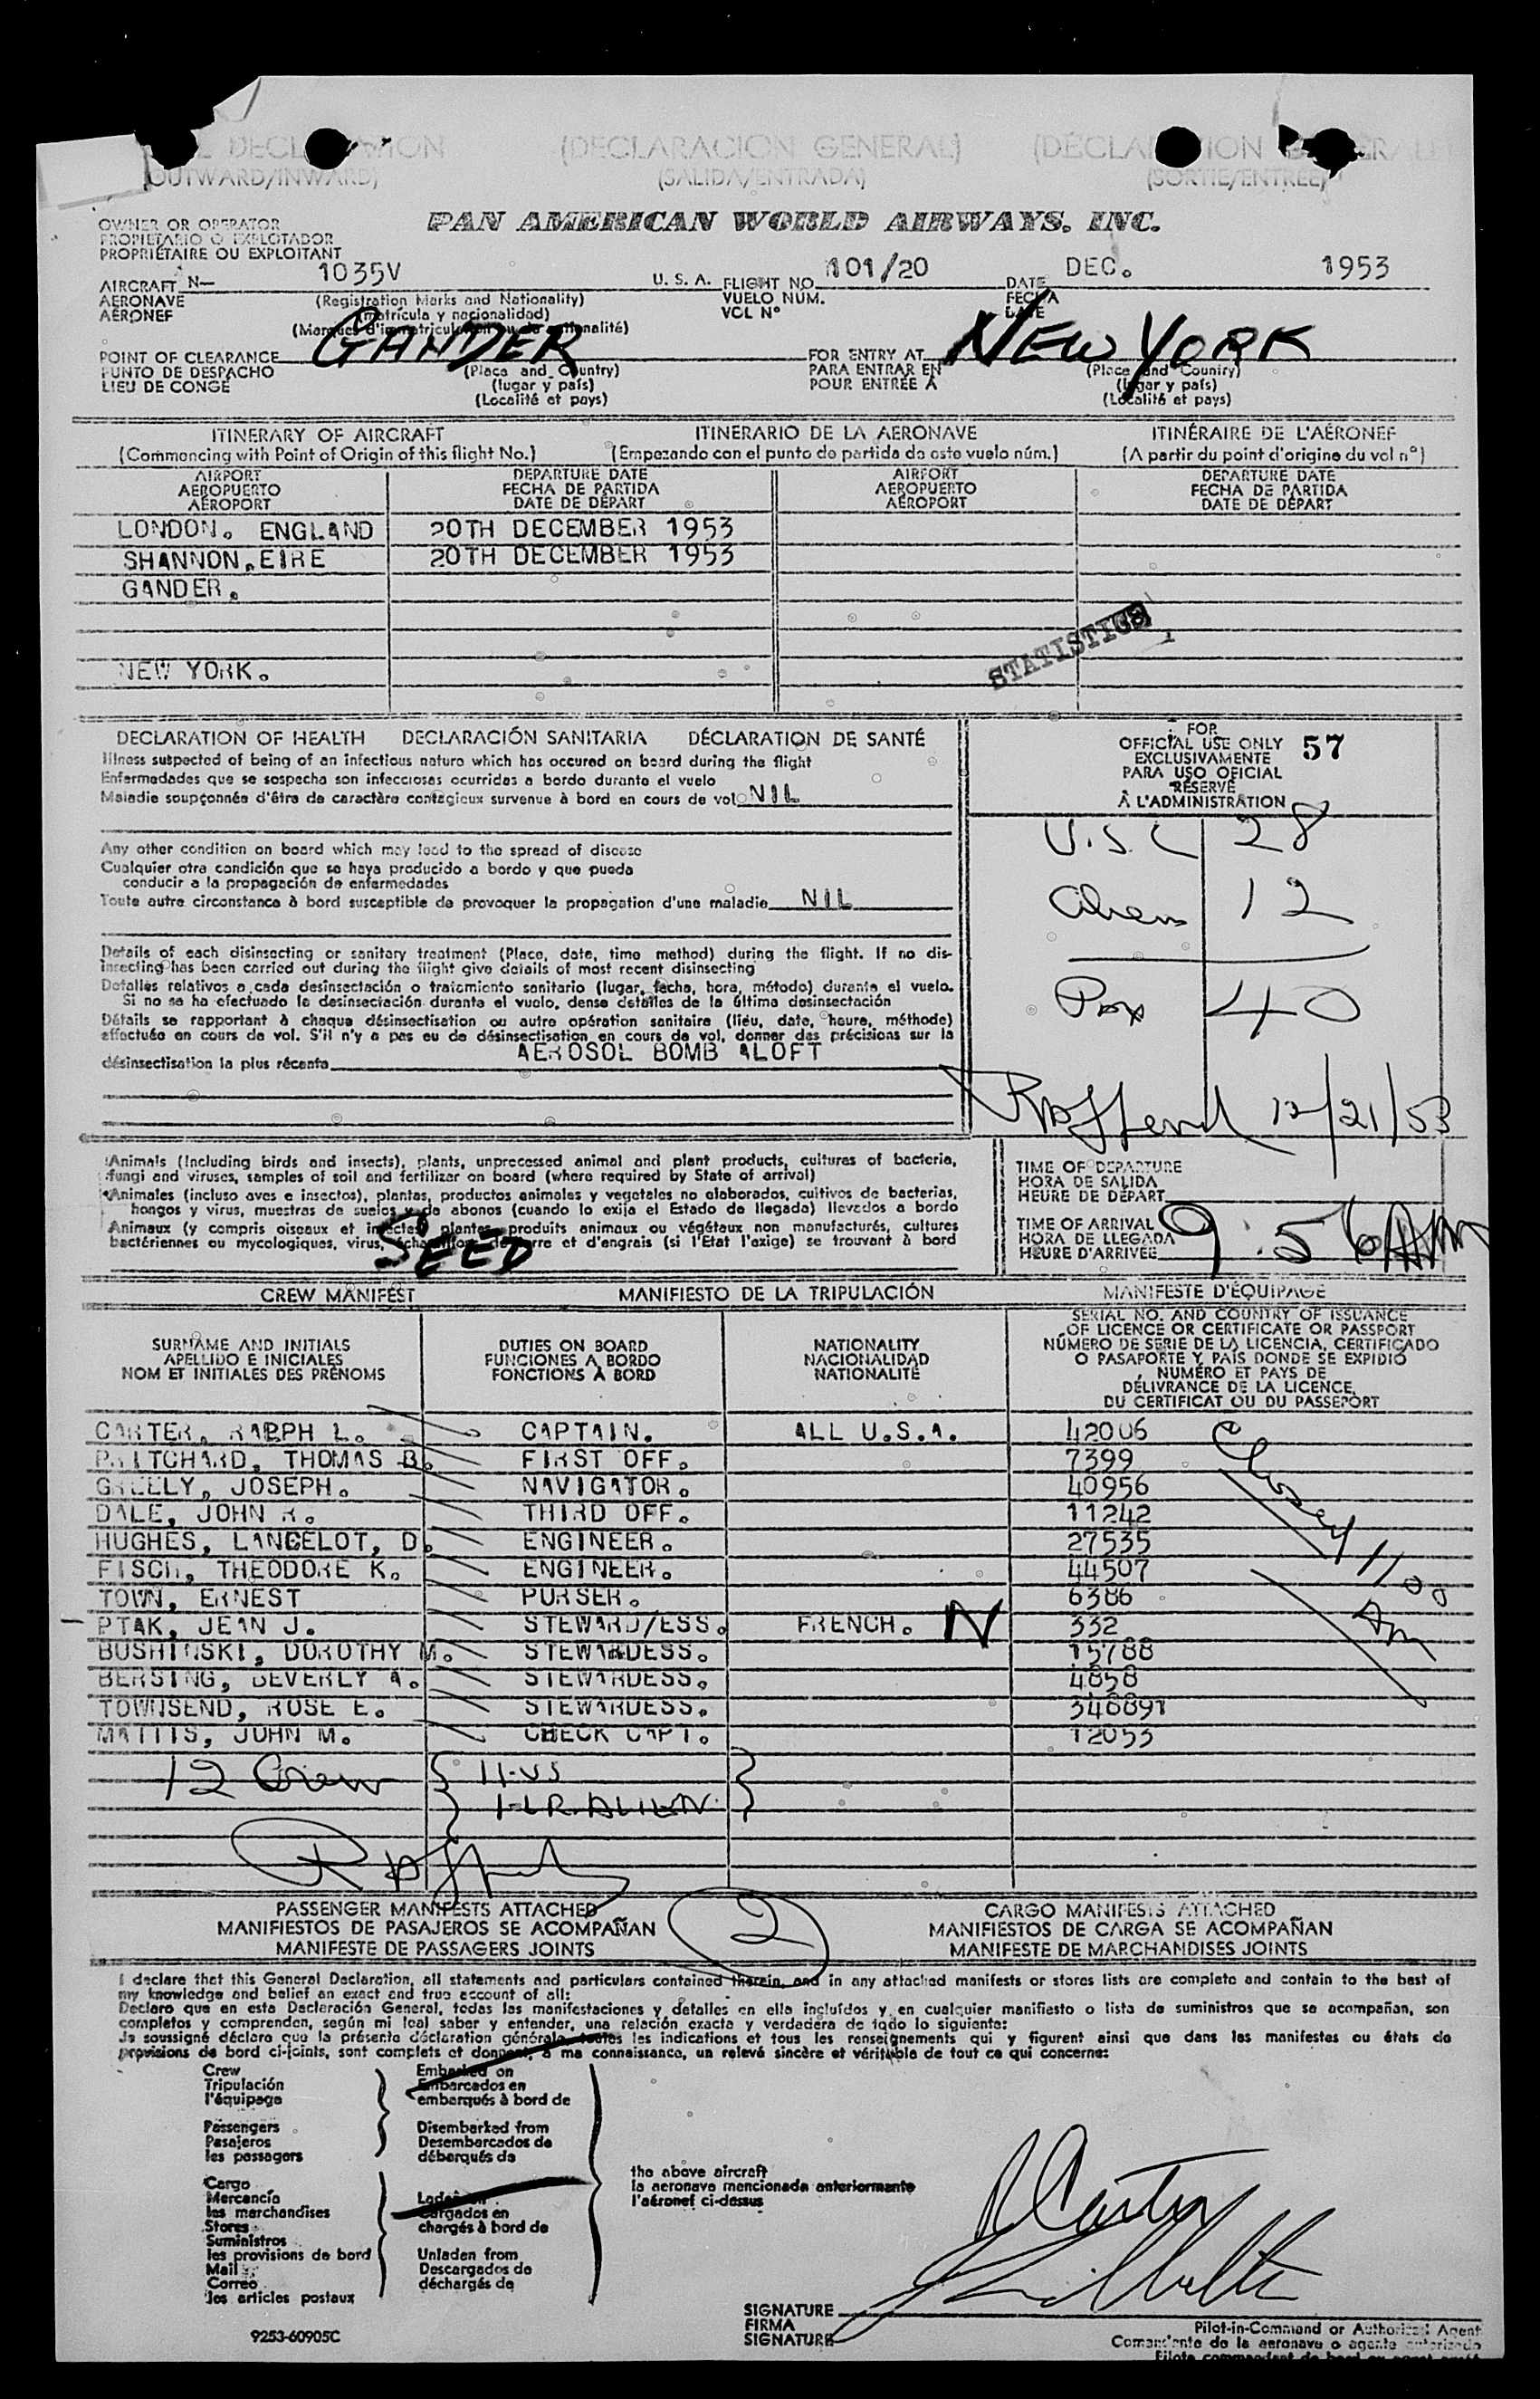 (DECLARACION GENERAL)
(OUTWARD/INWARD) (SALIDA/ENTRADA) (SORTIE/ENTREE)
OWNER OR OPERATOR
PROPIETARIO O EXPLOTADOR
PROPRIÉTAIRE OU EXPLOITANT
PAN AMERICAN WORLD AIRWAYS, INC.
AIRCRAFT N— 1035V U. S. A. FLIGHT NO. 101/20 DATE DEC. 1953
AERONAVE (Registration Marks and Nationality) VUELO NUM. FECHA
AÉRONEF (matrícula y nacionalidad) VOL Nº DATE
POINT OF CLEARANCE GANDER FOR ENTRY AT NEW YORK
PUNTO DE DESPACHO (Place and Country) PARA ENTRAR EN (Place and Country)
LIEU DE CONGÉ (lugar y país) POUR ENTRÉE A (lugar y país)
(Localité et pays) (Localité et pays)
ITINERARY OF AIRCRAFT ITINERARIO DE LA AERONAVE ITINÉRAIRE DE L'AÉRONEF
(Commencing with Point of Origin of this flight No.) (Empezando con el punto de partida de este vuelo núm.) (A partir du point d'origine du vol nº)
AIRPORT DEPARTURE DATE AIRPORT DEPARTURE DATE
AEROPUERTO FECHA DE PARTIDA AEROPUERTO FECHA DE PARTIDA
AÉROPORT DATE DE DÉPART AÉROPORT DATE DE DÉPART
LONDON. ENGLAND 20TH DECEMBER 1953
SHANNON, EIRE 20TH DECEMBER 1953
GANDER.
STATISTICS
NEW YORK.
DECLARATION OF HEALTH DECLARACIÓN SANITARIA DÉCLARATION DE SANTÉ
Illness suspected of being of an infectious nature which has occured on board during the flight
Enfermedades que se sospecha son infecciosas ocurridas a bordo durante el vuelo
Maladie soupçonnée d'être de caractère contagieux survenue à bord en cours de vol NIL
Any other condition on board which may lead to the spread of disease
Cualquier otra condición que se haya producido a bordo y que pueda
conducir a la propagación de enfermedades
Toute autre circonstance à bord susceptible de provoquer la propagation d'une maladie NIL
Details of each disinsecting or sanitary treatment (Place, date, time method) during the flight. If no dis-
insecting has been carried out during the flight give details of most recent disinsecting
Detalles relativos a cada desinsectación o tratamiento sanitario (lugar, fecha, hora, método) durante el vuelo.
Si no se ha efectuado la desinsectación durante el vuelo, dense detalles de la última desinsectación
Détails se rapportant à chaque désinsectisation ou autre opération sanitaire (lieu, date, heure, méthode)
effectuée en cours de vol. S'il n'y a pas eu de désinsectisation en cours de vol, donner des précisions sur la
désinsectisation la plus récente AEROSOL BOMB ALOFT
FOR
OFFICIAL USE ONLY 57
EXCLUSIVAMENTE
PARA USO OFICIAL
RÉSERVÉ
À L'ADMINISTRATION
U.S.C 28
Aliens 12
Pax 40
12/21/53
Animals (Including birds and insects), plants, unprocessed animal and plant products, cultures of bacteria,
fungi and viruses, samples of soil and fertilizer on board (where required by State of arrival)
Animales (incluso aves e insectos), plantas, productos animales y vegetales no elaborados, cultivos de bacterias,
hongos y virus, muestras de suelos y de abonos (cuando lo exija el Estado de llegada) llevados a bordo
Animaux (y compris oiseaux et insectes), plantes, produits animaux ou végétaux non manufacturés, cultures
bactériennes ou mycologiques, virus, échantillons de terre et d'engrais (si l'Etat l'exige) se trouvant à bord
SEED
TIME OF DEPARTURE
HORA DE SALIDA
HEURE DE DÉPART
TIME OF ARRIVAL 9:56 AM
HORA DE LLEGADA
HEURE D'ARRIVÉE
CREW MANIFEST MANIFIESTO DE LA TRIPULACIÓN MANIFESTE D'ÉQUIPAGE
SURNAME AND INITIALS DUTIES ON BOARD NATIONALITY SERIAL NO. AND COUNTRY OF ISSUANCE
APELLIDO E INICIALES FUNCIONES A BORDO NACIONALIDAD OF LICENCE OR CERTIFICATE OR PASSPORT
NOM ET INITIALES DES PRÉNOMS FONCTIONS À BORD NATIONALITÉ NÚMERO DE SERIE DE LA LICENCIA, CERTIFICADO
O PASAPORTE Y PAÍS DONDE SE EXPIDIÓ
NUMÉRO ET PAYS DE
DÉLIVRANCE DE LA LICENCE,
DU CERTIFICAT OU DU PASSEPORT
CARTER, RALPH L. CAPTAIN. ALL U.S.A. 42006
PRITCHARD, THOMAS B. FIRST OFF. 7399
GREELY, JOSEPH. NAVIGATOR. 40956
DALE, JOHN R. THIRD OFF. 11242
HUGHES, LANCELOT, D. ENGINEER. 27535
FISCH, THEODORE K. ENGINEER. 44507
TOWN, ERNEST PURSER. 6386
PTAK, JEAN J. STEWARD/ESS. FRENCH. N 332
BUSHINSKI, DOROTHY M. STEWARDESS. 15788
BERSING, BEVERLY A. STEWARDESS. 4858
TOWNSEND, ROSE E. STEWARDESS. 348891
MATTIS, JOHN M. CHECK CAPT. 12053
Closed 1100
AM
12 Crew 11-US
1-LR.ALIEN
PASSENGER MANIFESTS ATTACHED 2 CARGO MANIFESTS ATTACHED
MANIFIESTOS DE PASAJEROS SE ACOMPAÑAN MANIFIESTOS DE CARGA SE ACOMPAÑAN
MANIFESTE DE PASSAGERS JOINTS MANIFESTE DE MARCHANDISES JOINTS
I declare that this General Declaration, all statements and particulars contained therein, and in any attached manifests or stores lists are complete and contain to the best of
my knowledge and belief an exact and true account of all:
Declaro que en esta Declaración General, todas las manifestaciones y detalles en ella incluídos y en cualquier manifiesto o lista de suministros que se acompañan, son
completos y comprenden, según mi leal saber y entender, una relación exacta y verdadera de todo lo siguiente:
Je soussigné déclare que la présente déclaration générale, toutes les indications et tous les renseignements qui y figurent ainsi que dans les manifestes ou états de
provisions de bord ci-joints, sont complets et donnent, à ma connaissance, un relevé sincère et véritable de tout ce qui concerne:
Crew Embarked on
Tripulación Embarcados en
l'équipage embarqués à bord de
Passengers Disembarked from
Pasajeros Desembarcados de
les passagers débarqués de
the above aircraft
la aeronave mencionada anteriormente
l'aéronef ci-dessus
Cargo
Mercancía Laden on
les marchandises Cargados en
Stores chargés à bord de
Suministros
les provisions de bord Unladen from
Mail Descargados de
Correo déchargés de
les articles postaux
R Carter
SIGNATURE
FIRMA
SIGNATURE
Pilot-in-Command or Authorized Agent
Comandante de la aeronave o agente autorizado
9253-60905C